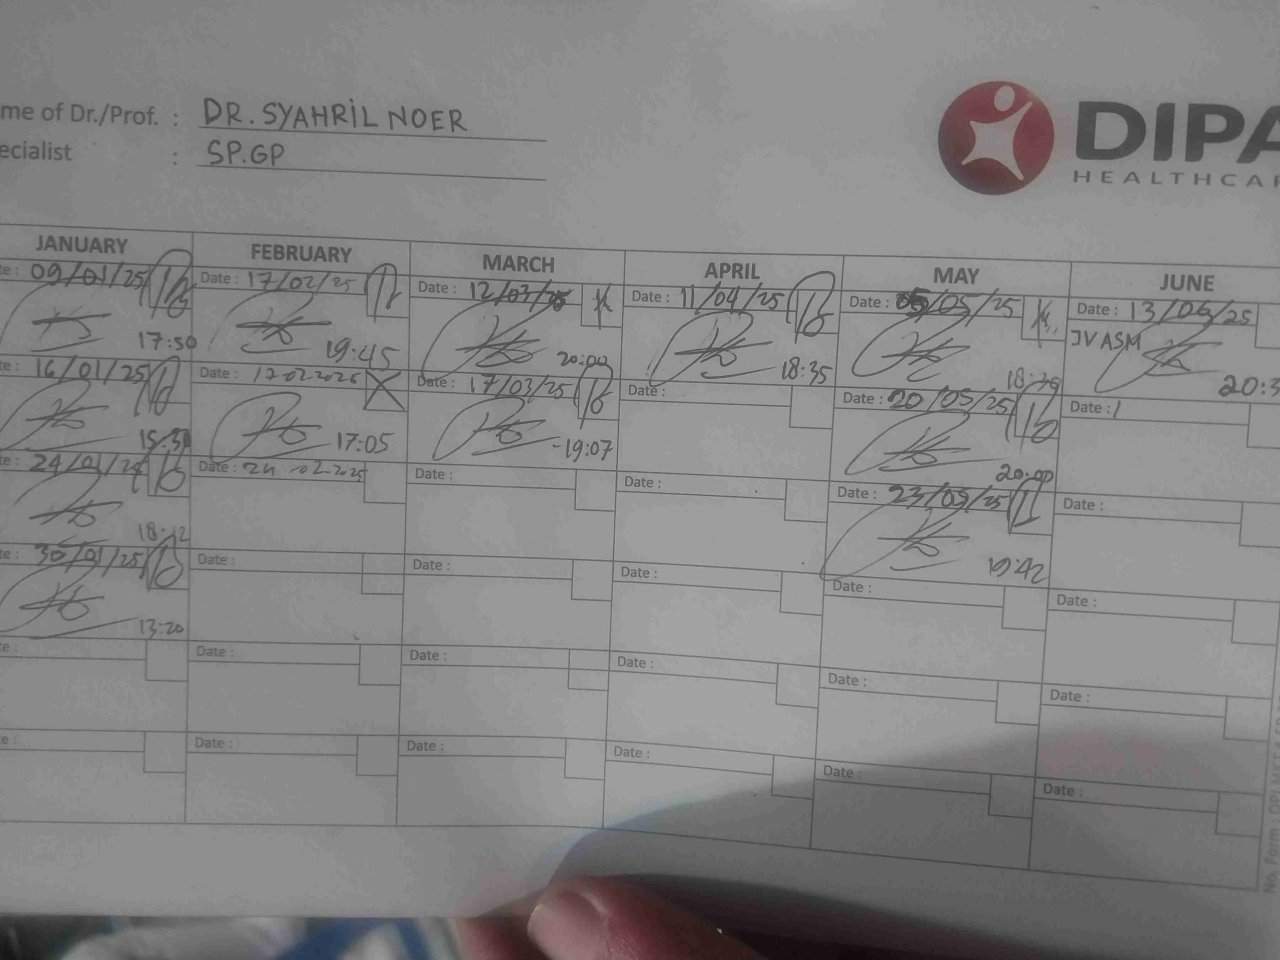 me of Dr./Prof. : DR. SYAHRIL NOER
ecialist : SP.GP
DIPA
HEALTHCAR
JANUARY FEBRUARY MARCH APRIL MAY JUNE
te : 09/01/25 Date : 17/02/25 Date : 12/03/25 Date : 11/04/25 Date : 05/05/25 Date : 13/06/25
JV ASM
17:50 19:45 20:00 18:35 18:39 20:3
te : 16/01/25 Date : 17 02 2025 Date : 17/03/25 Date : Date : 20/05/25 Date : /
15:30 17:05 19:07 20:00
te : 24/01/25 Date : 24 -02.2025 Date : Date : Date : 23/05/25 Date :
18:12 19:42
te : 30/01/25 Date : Date : Date : Date : Date :
13:20
te : Date : Date : Date : Date : Date :
te : Date : Date : Date : Date : Date :
No. Form :